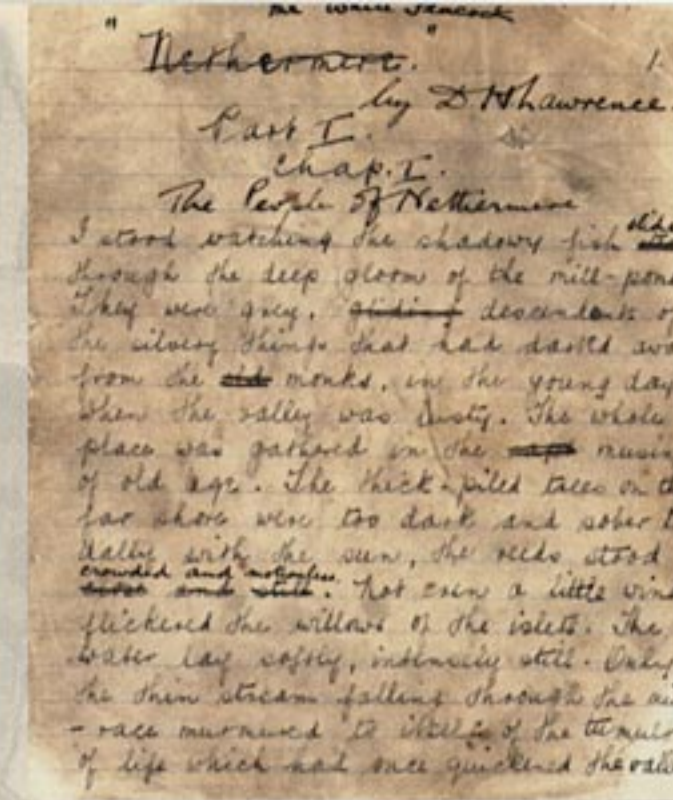 The White Peacock
"Nethermere." 1.
by D H Lawrence.
Part I.
Chap. I.
The People of Nethermere
I stood watching the shadowy fish slide
through the deep gloom of the mill-pond
They were grey, gliding descendants of
the silvery things that had darted away
from the old monks, in the young day
when the valley was lusty. The whole
place was gathered in the musin
of old age. The thick-piled trees on th
far shore were too dark and sober t
dally with the sun, the reeds stood
crowded and motionless.
still. Not even a little wind
flickered the willows of the islets. The
water lay softly, intensely still. Only
the thin stream falling through the
-race murmured to itself of the tumul
of life which had once quickened the vall